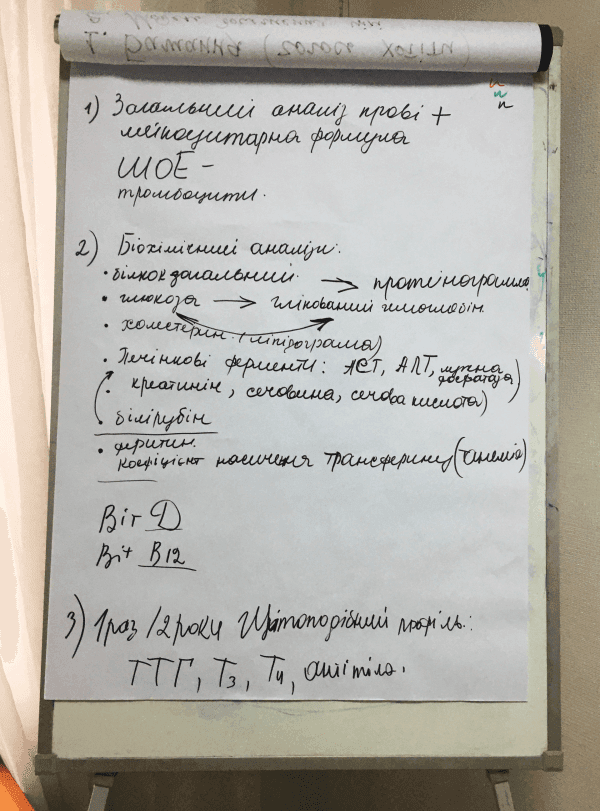 1) Загальний аналіз крові +
лейкоцитарна формула
ШОЕ -
тромбоцити.
2) Біохімічний аналіз:
• білкок загальний → протеінограмма
• глюкоза → глікований гемоглобін
• холестерин (ліпідограма)
• Печінкові ферменти: АСТ, АЛТ, лужна фосфатаза)
• креатинін, сечовина, сечова кислота)
• білірубін
• феритин.
коефіцієнт насичення трансферину (анемія)
Віт Д
Віт В12
3) 1 раз / 2 роки Щитоподібний профіль:
ТТГ, Т3, Т4, антитіла.